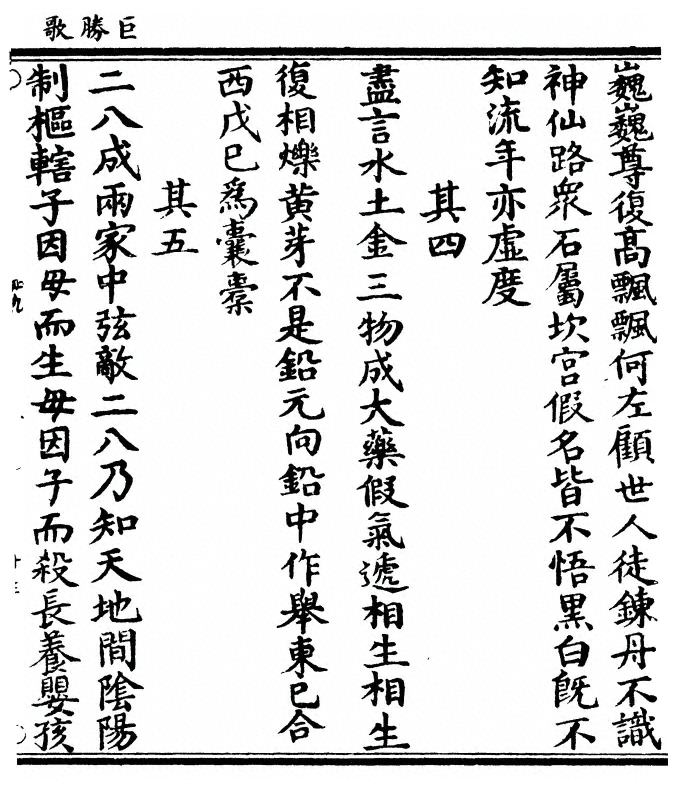 巨勝歌
巍巍尊復髙飄飄何左顧世人徒鍊丹不識
神仙路衆石屬坎宮假名皆不悟黒白旣不
知流年亦虛度
其四
盡言水土金三物成大藥假氣遞相生相生
復相爍黄芽不是鉛元向鉛中作舉東已合
西戊己爲囊橐
其五
二八成兩家中弦敵二八乃知天地間陰陽
制樞轄子因母而生母因子而殺長養嬰孩
十三